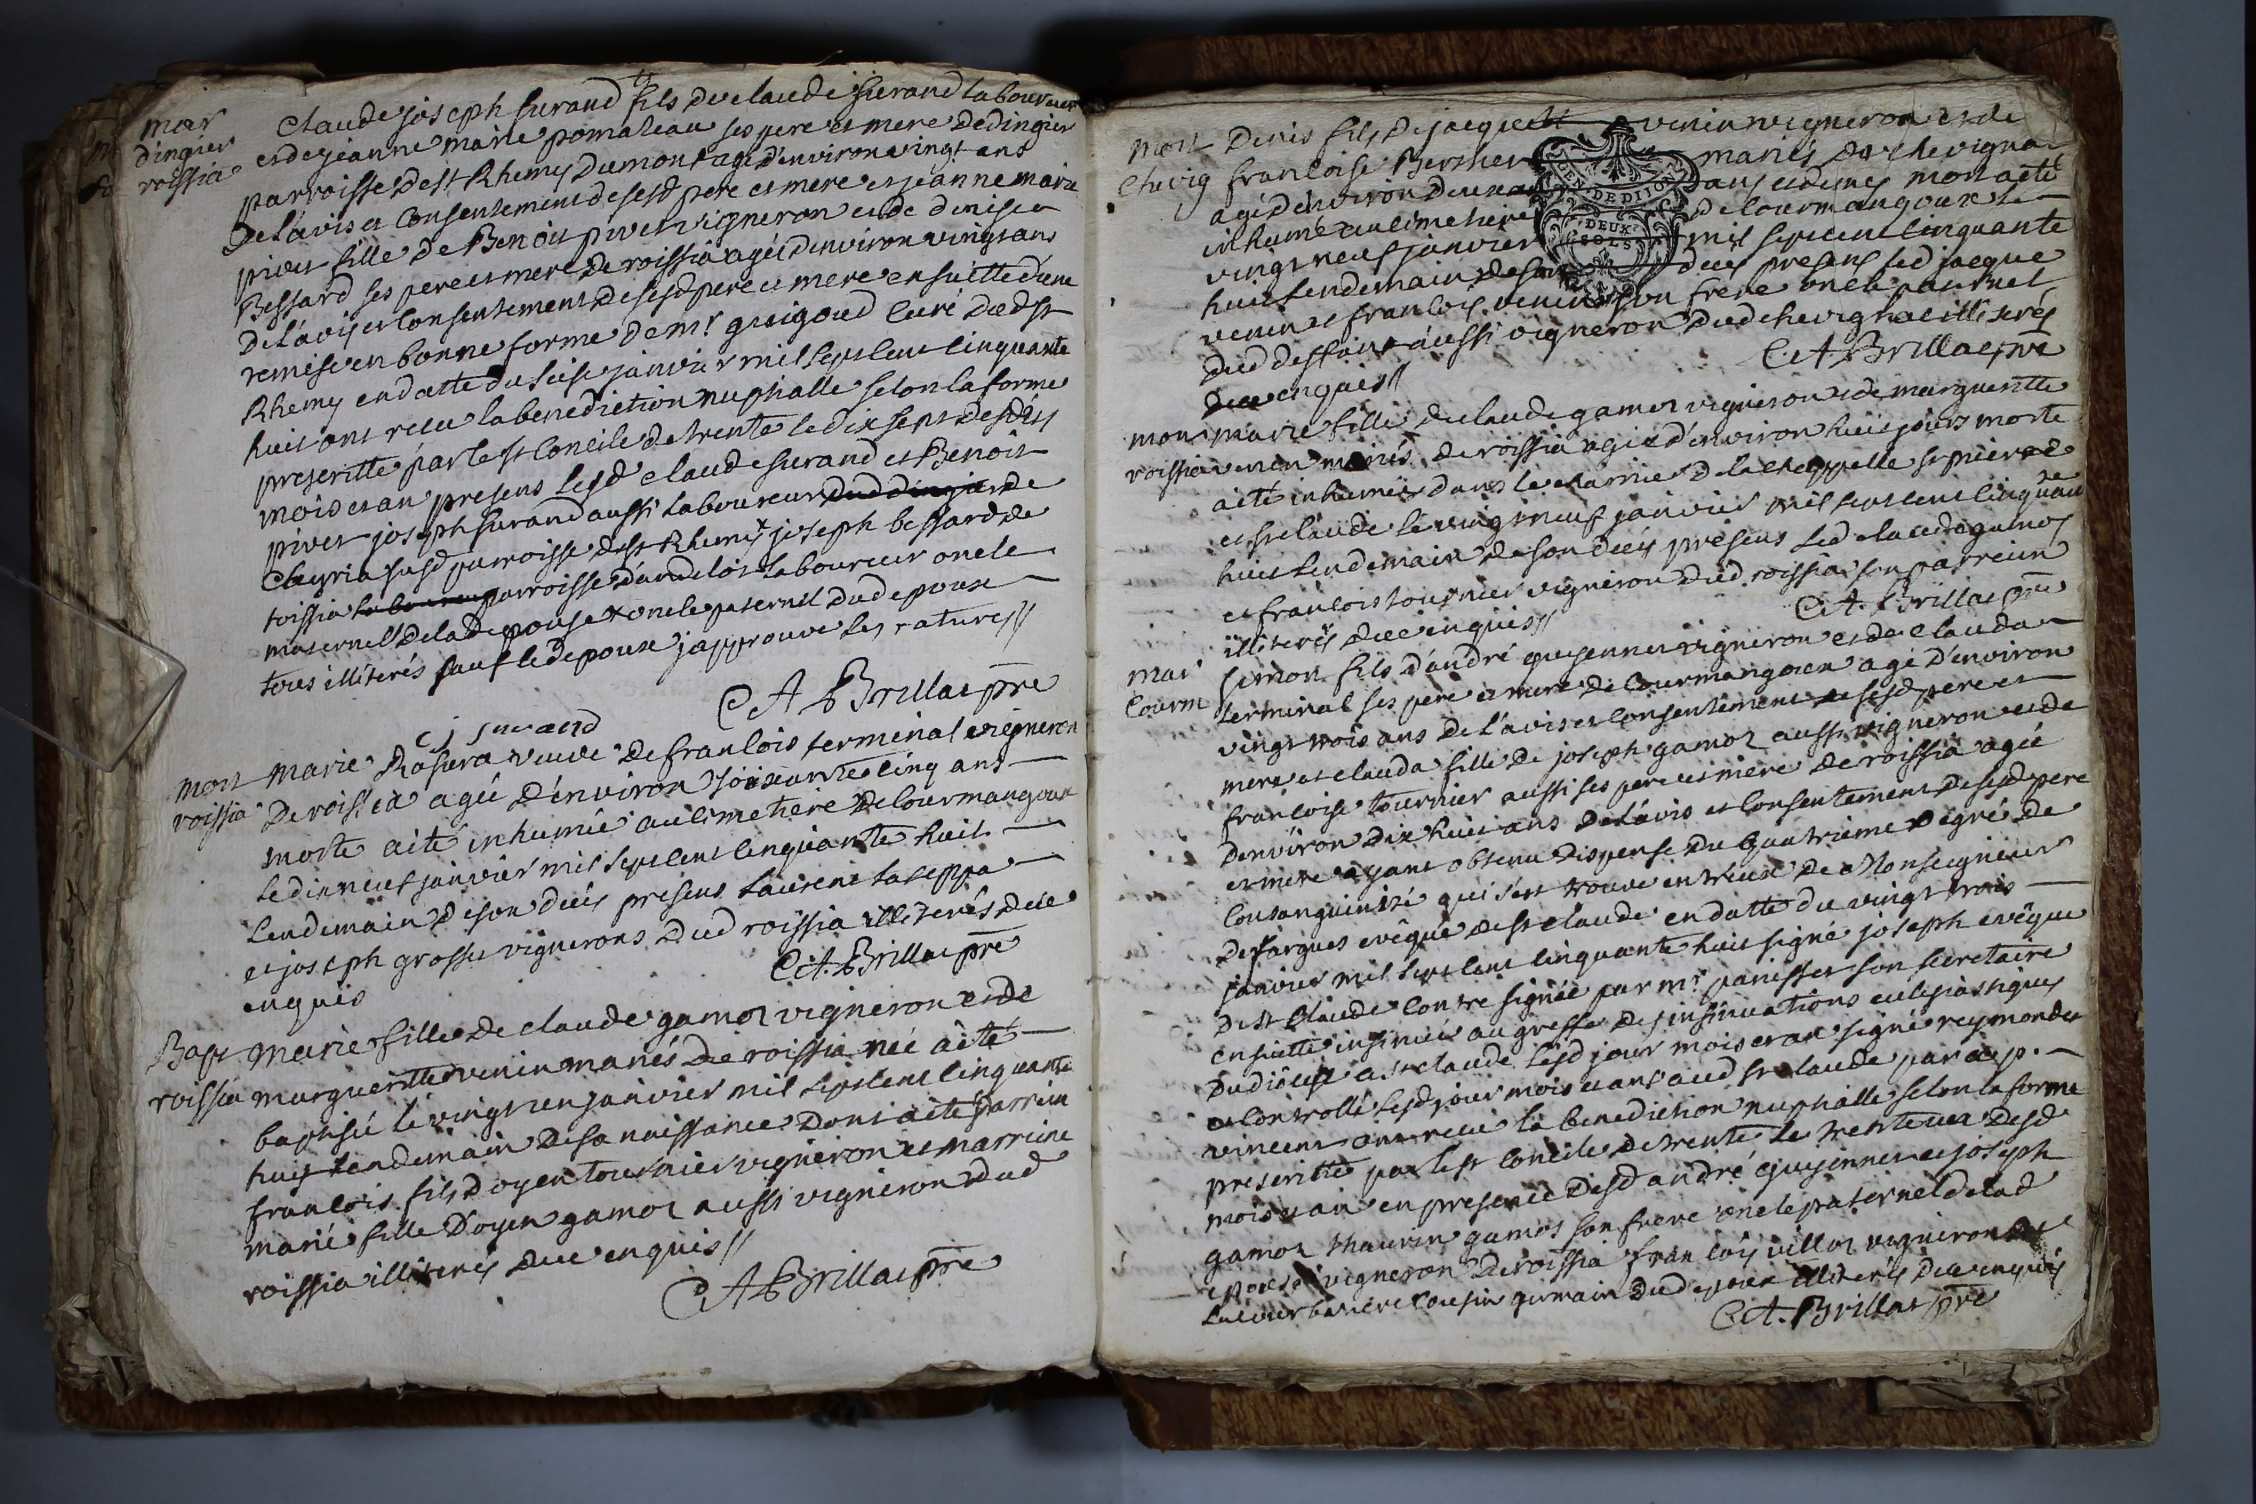 mar
dingier
roissia
Claude joseph surand fils de claude surand laboureur
et de jeanne marie pomateau ses pere et mere de dingier
parroisse de st Rhemy Dumont agé d'environ vingt ans
De l'avis et consentement de sesd pere et mere et jeanne marie
pivet fille de Benoit pivet vigneron et de denise
Bessard ses pere et mere de roissia agée d'environ vingt ans
De l'avis et consentement de sesd pere et mere ensuitte d'une
remise en bonne forme de mr curé dud st
Rhemy en datte du seise janvier mil sept cent cinquante
huit ont receu la benediction nuphalle selon la forme
prescritte par le st Concile de trente le dix sept desd
mois et an presens lesd claude surand et Benoit
pivet joseph surand aussi laboureur dud dingier de
susd parroisse de st Rhemy joseph bessard de
roissia parroisse d'andelot laboureur oncle
maternel de lad epouse oncle paternel dud epoux
tous illiterés sauf led epoux j'approuve les ratures //
C A Brillat ptre
c j surand
mort
roissia
Marie Rasura veuve de francois terminal vigneron
De roissia agée d'environ soixante cinq ans
morte a été inhumée au cimetiere de courmangoux
Le dix neuf janvier mil sept cent cinquante huit
Lendemain de son decés presens Laurent
et joseph grosset vignerons dud roissia illiterés de ce
enquis
C A Brillat ptre
Bapt
roissia
Marie fille de claude gamoz vigneron et de
marguerite venin mariés de roissia née a été
baptisée le vingt en janvier mil sept cent cinquante
huit Lendemain de sa naissance dont a été parrein
francois fils d'oyen tournier vigneron et marreine
marie fille d'oyen gamoz aussi vigneron dud
roissia illiterés de ce enquis //
C A Brillat ptre
mort
Chevig
Denis fils de jacque venin vigneron et de
francoise Bernier mariés de chevignat
agé d'environ deux ans et demy mort a été
inhumé au cimetiere de courmangoux le
vingt neuf janvier mil sept cent cinquante
huit Lendemain de son decés presens led jacque
venin et francois venin son frere oncle paternel
dud deffunt aussi vigneron dud chevignat illiterés
de ce enquis //
C A Brillat ptre
mort
roissia
marie fille de claude gamoz vigneron et de marguerite
venin mariés de roissia agée d'environ huit jours morte
a été inhumée dans le charnier de la chappelle st pierre
et st claude le vingt neuf janvier mil sept cent cinquante
huit Lendemain de son decés presens led claude gamoz
et francois tournier vigneron dud roissia son parrein
illiterés de ce enquis //
C A Brillat ptre
mar
Courm
Simon fils d'andré guyennet vigneron et de clauda
terminal ses pere et mere de courmangoux agé d'environ
vingt trois ans de l'avis et consentement de sesd pere et
mere et clauda fille de joseph gamoz aussi vigneron et de
francoise tournier aussi ses pere et mere de roissia agée
d'environ dix huit ans de l'avis et consentement de sesd pere
et mere ayant obtenu dispense du quatrieme degré de
consanguinité qui s'est trouvé entreux de Monseigneur
De fargues evêque de st claude en datte du vingt trois
janvier mil sept cent cinquante huit signé joseph evêque
De st Claude contre signée par mr panisset son secretaire
ensuitte insinuée au greffe des insinuations eclesiastiques
Du diocese a st claude lesd jour mois et an signé reymondet
et controllé lesd jour mois et ans aud st claude par
vincent ont receu la benediction nuphalle selon la forme
prescritte par le st concile de trente le trente un desd
mois et an en presence desd andré guyennet et joseph
gamoz Thaurin gamos son frere oncle paternel de lad
epouse vigneron de roissia francois villoz vigneron
cousin germain dud epoux illiterés de ce enquis
C A Brillat ptre
GEN DE DIJON
DEUX
SOLS